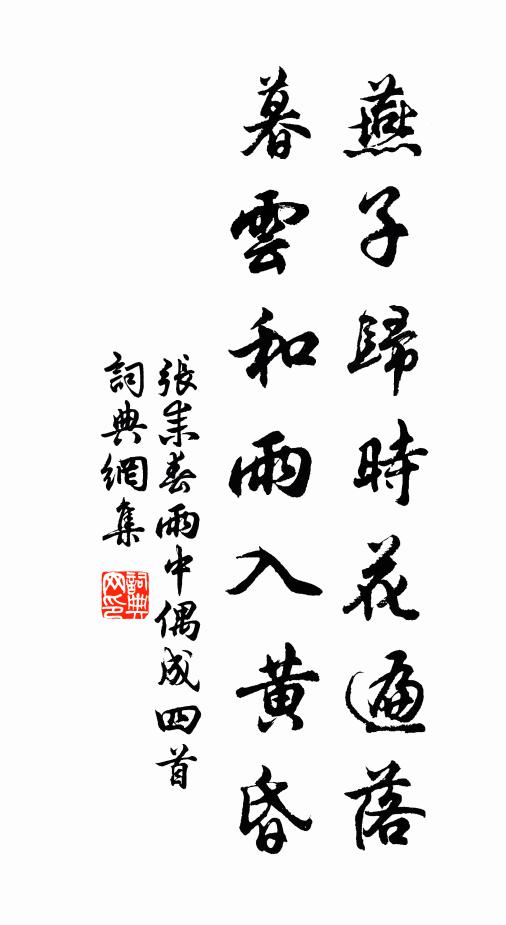 燕子歸時花遍落
暮雲和雨入黃昏
張耒春雨中偶成四首
詞典網集
詞典网印